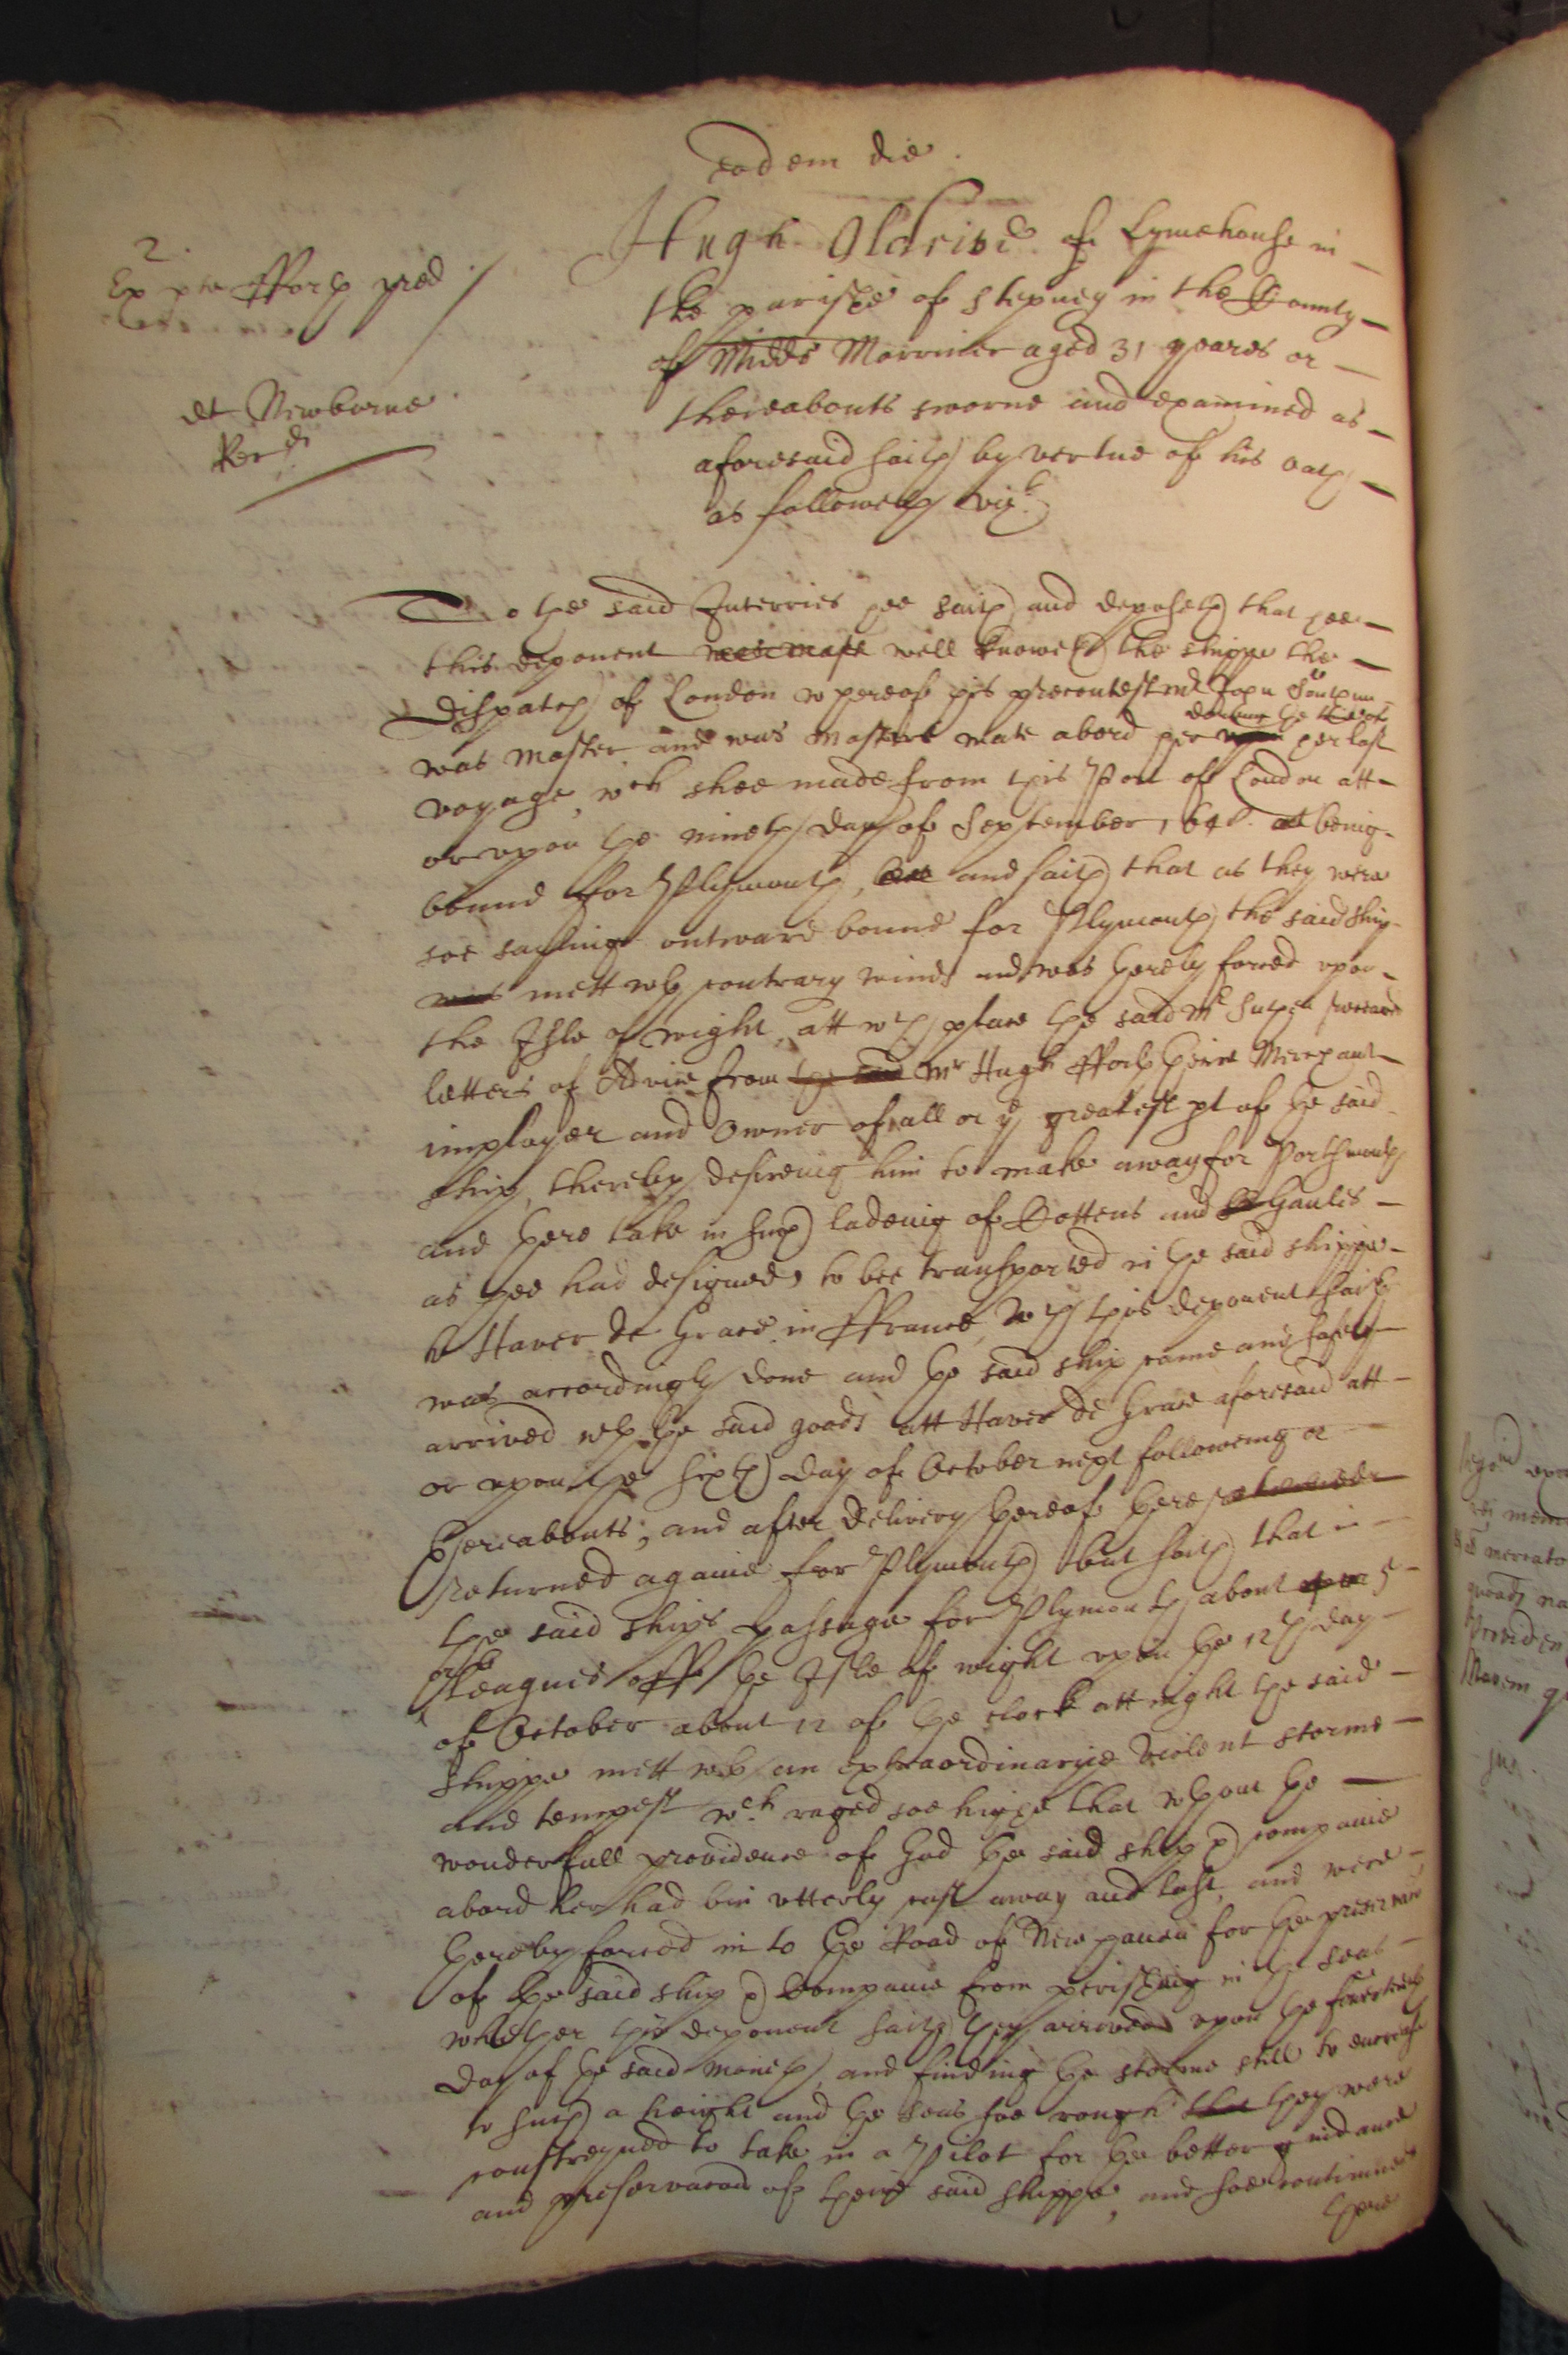 eodem die.
2.
Ex pte fforth pred
dt Newborne
Rerd
Hugh Oldrisd of Lymehouse in
the parishe of Stepney in the County
of Midds Marriner aged 31 yeares or
thereabouts sworne and examined as
aforesaid saith by vertue of his oath
as followeth vizt
To the said Interries hee saith and deposeth that hee
this deponent was mast well knoweth the shippe the
Dispatch of London whereof his precontest Mr John
was Master and was Masters mate abord her upon her last
voyage, wch shee made from this Port of London att
or upon the nineth day of September, 164 being
bound for Plymouth, and saith that as they were
soe sayling outward bound for Plymouth the said ship
was mett wth contrary winds and was thereby forced upon
the Isle of wight, att wch place the said Mr received
letters of Advice from the said Mr Hugh fforth their Merchant
imployer and Owner of all or ye greatest pt of the said
ship, thereby desireing him to make away for Portsmouth
and there take in such ladeing of Cottens and Gaules
as hee had designed, to bee transported in the said shippe
to Haver de Grace in ffrance, wch this deponent saith
was accordingly done and the said ship came and safely
arrived wth the said goods att Haver de Grace aforesaid att
or upon the sixth day of October next following or
thereabouts; and after delivery thereof there
returned againe for Plymouth, but saith that in
the said ships passage for Plymouth about 5
or 6
leagues off the Isle of wight upon the 12th day
of October about 12 of the clock att night the said
shippe mett wth an extraordinarye violent storme
and tempest wch raged soe highe that wthout the
wonderfull providence of God the said ship & companie
abord her had bin utterly cast away and lost, and were
thereby forced in to the Road of Newhaven for the
of the said ship & Companie from perishing in the seas
whether this deponent saith they arrived upon the fourteenth
day of the said moneth, and finding the storme still to encrease
to such a height and the seas soe rough that they were
constreyned to take in a Pilot for the better guidance
and preservacon of their said shippe, and soe continued
there